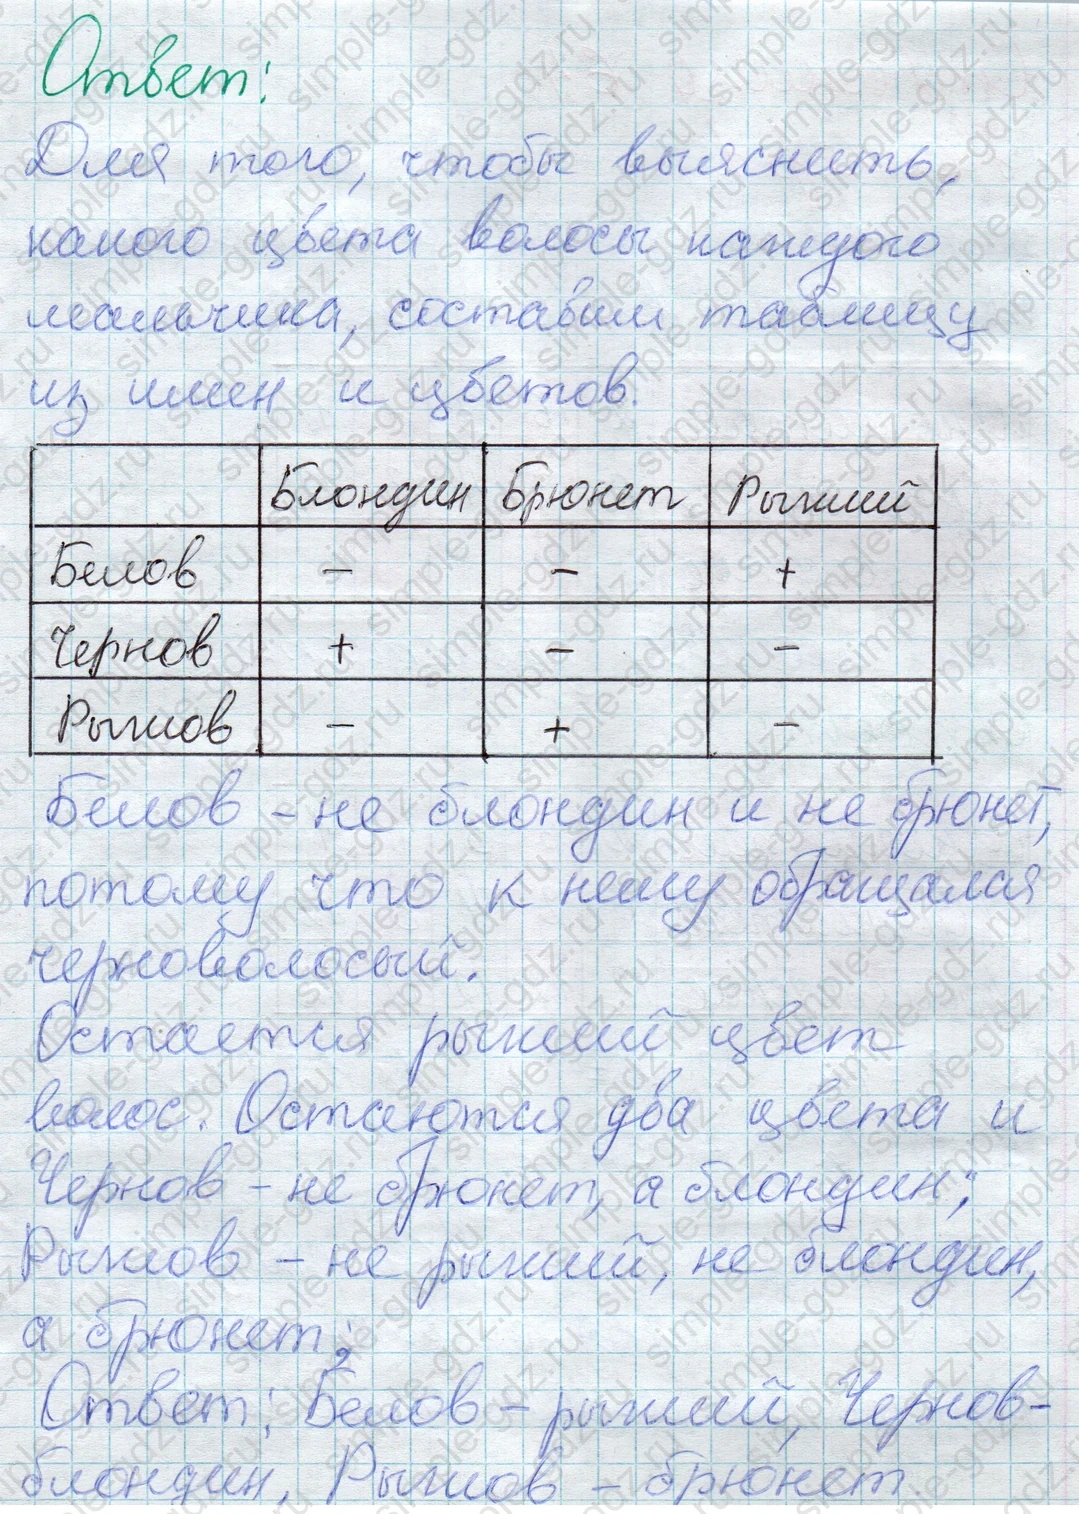 Ответ:
Для того, чтобы выяснить,
какого цвета волосы каждого
мальчика, составим таблицу
из имен и цветов.
Блондин Брюнет Рыжий
Белов - - +
Чернов + - -
Рыжов - + -
Белов - не блондин и не брюнет,
потому что к нему обращался
черноволосый.
Остается рыжий цвет
волос. Остаются два цвета и
Чернов - не брюнет, а блондин;
Рыжов - не рыжий, не блондин,
а брюнет;
Ответ: Белов - рыжий, Чернов-
блондин, Рыжов - брюнет.
simple-gdz.ru